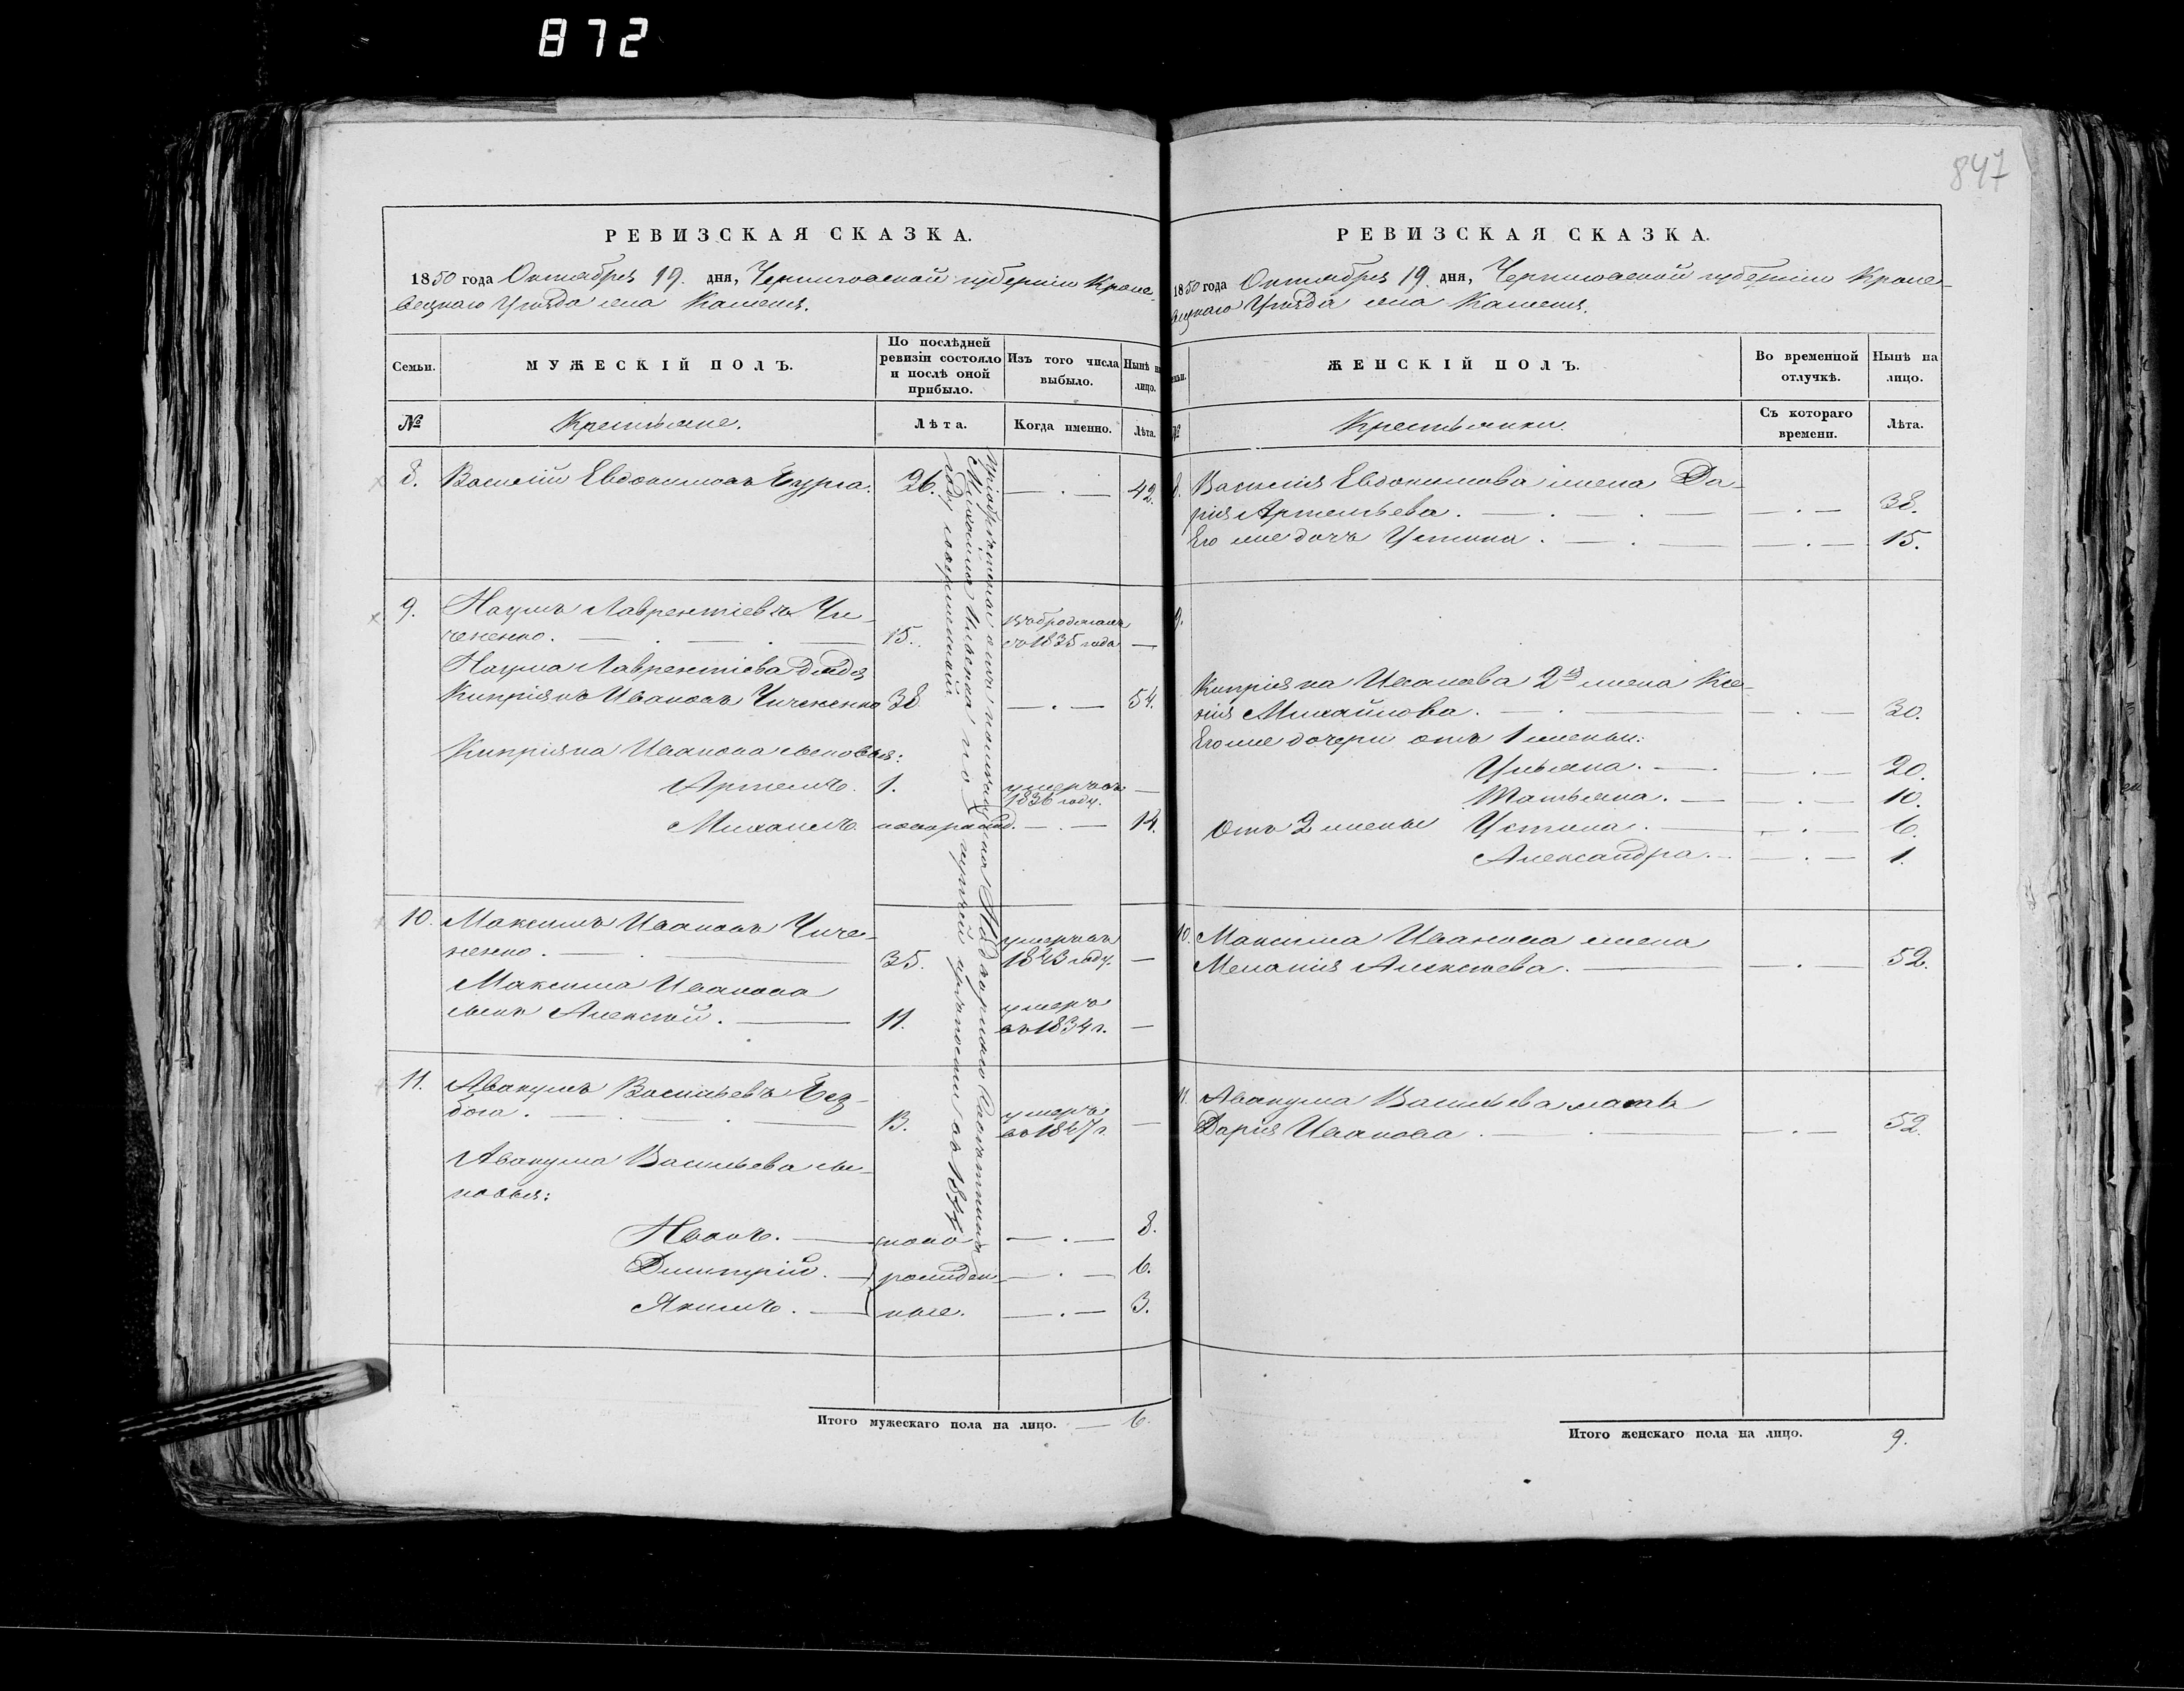 872
847
РЕВИЗСКАЯ СКАЗКА.
1850 года Октября 19. дня, Черниговской губернiи Кроле-
вецкаго Уѣзда села Камень.
Семьи.
МУЖЕСКІЙ ПОЛЪ.
По послѣдней ревизіи состояло и послѣ оной прибыло.
Изъ того числа выбыло.
Нынѣ на лицо.
№
Крестьяне.
Лѣта.
Когда именно.
Лѣта.
8. Василiй Евдокимовъ 26. — . — 42.
9. Наумъ Лаврентiевъ Чи-
чененко. — . — . — 15. въ бродягахъ
съ 1835 года —
Наума Лаврентiева дядя
Кипрiянъ Ивановъ Чичененко 38 — . — 54.
Кипрiяна Иванова сыновья:
Артемъ. 1. умеръ въ
1836 году. —
Михаилъ. новорожд. — . — 14.
10. Максимъ Ивановъ Чиче-
ненко. — . — 35. умеръ въ
1843 году. —
Максима Иванова
сынъ Алексѣй. — 11. умеръ
въ 1834 г. —
11. Авакумъ Васильевъ
13. умеръ
въ 1847 г. —
Авакума Васильева сы-
новья:
Иванъ. — ново — . — 8.
Димитрiй. — рожден- — . — 6.
Якимъ. — ные. — . — 3.
Итого мужескаго пола на лицо. — 6.
РЕВИЗСКАЯ СКАЗКА.
1850 года Октября 19. дня, Черниговской губернiи Кроле-
вецкаго Уѣзда села Камень.
Семьи.
ЖЕНСКІЙ ПОЛЪ.
Во временной отлучкѣ.
Нынѣ на лицо.
№
Крестьянки.
Съ котораго времени.
Лѣта.
8. Василiя Евдокимова жена Да-
рiя Артемьева. — . — . — — . — 38.
Его же дочь Устина. — . — — . — 15.
9.
Кипрiяна Иванова 2я жена Ксе-
нiя Михайлова. — . — — . — 30.
Его же дочери отъ 1 жены:
Ульяна. — . — . — 20.
Татьяна. — . — 10.
Отъ 2 жены Устина. — . — 6.
Александра. — . — 1.
10. Максима Иванова жена
Меланiя Алексѣева. — — . — 52.
11. Авакума Васильева мать
Дарiя Иванова. — . — — . — 52.
Итого женскаго пола на лицо. 9.